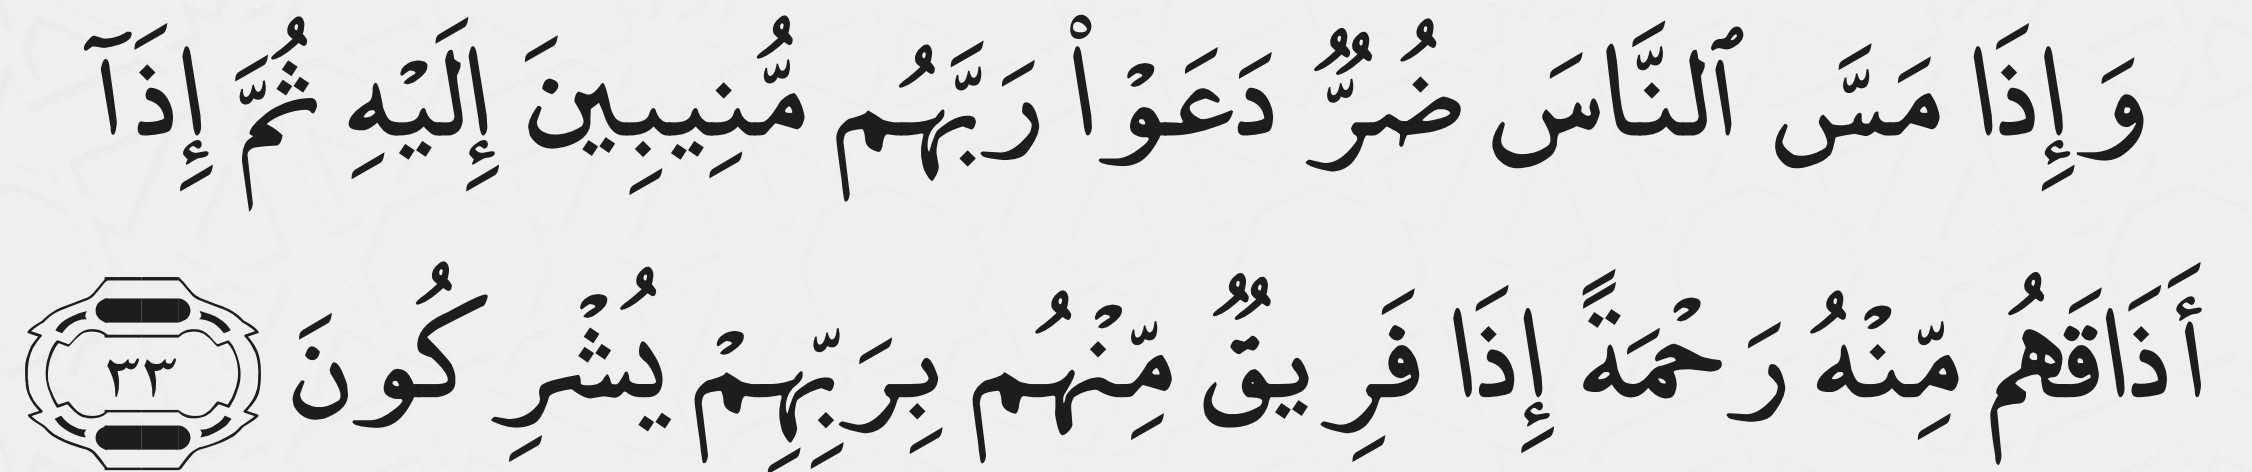 وَإِذَا مَسَّ ٱلنَّاسَ ضُرٌّ دَعَوْا۟ رَبَّهُم مُّنِيبِينَ إِلَيْهِ ثُمَّ إِذَآ
أَذَاقَهُم مِّنْهُ رَحْمَةً إِذَا فَرِيقٌ مِّنْهُم بِرَبِّهِمْ يُشْرِكُونَ ٣٣